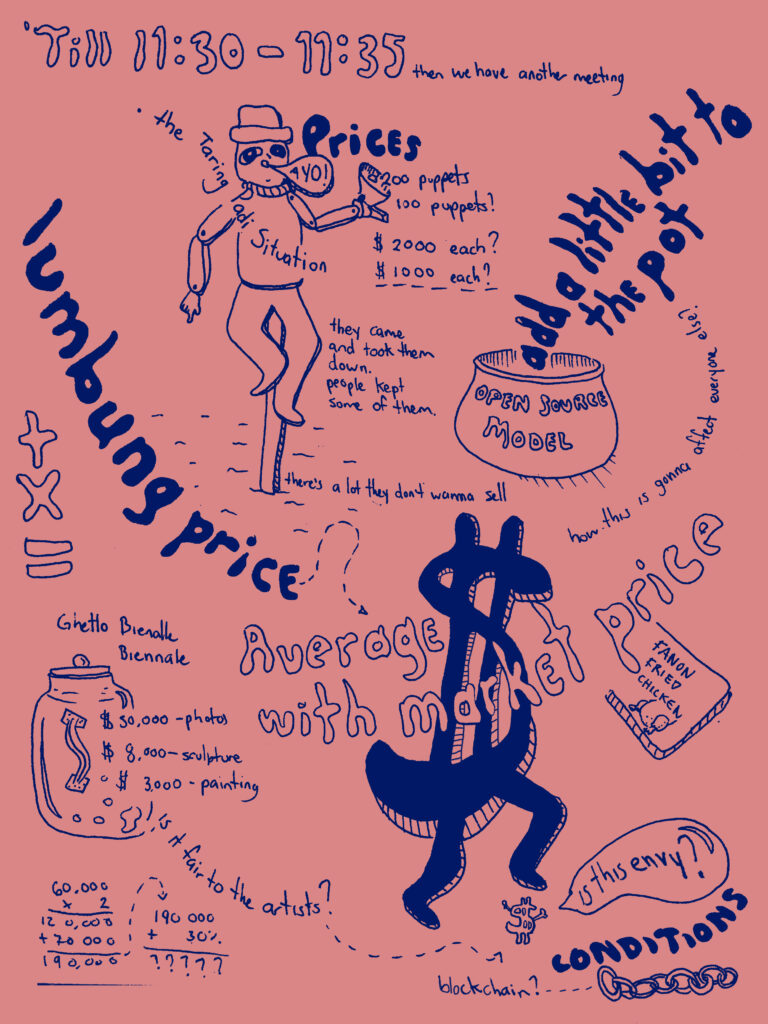 'Till 11:30 - 11:35
then we have another meeting
• the Taring
adi Situation
Prices
AYO!
200 puppets
100 puppets?
$ 2000 each?
$ 1000 each?
they came
and took them
down.
people kept
some of them.
there's a lot they don't wanna sell
add a little bit to
the pot
OPEN SOURCE
MODEL
how this is gonna affect everyone else?
lumbung price
+
x
=
Average
with market price
$
FANON
FRIED
CHICKEN
Ghetto Bienalle
Biennale
$ 50,000 - photos
$ 8,000 - sculpture
$ 3,000 - painting
is it fair to the artists?
60,000
x 2
120,000
+70 000
190,000
190 000
+ 30%
?????
is this envy?
CONDITIONS
blockchain?